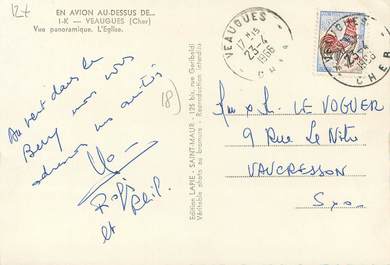 12+
EN AVION AU-DESSUS DE...
I-K - VEAUGUES (Cher)
Vue panoramique. L'Eglise.
VEAUGUES
17 H15
23-4
1966
CHER
VEAUGUES
23-4
1966
CHER
Au vert dans le
Berry nous vous
adressons nos amitiés
18)
et
Edition LAPIE - SAINT-MAUR - 125 bis, rue Garibaldi
Véritable photo au bromure - Reproduction interdite
M x Mme L. LE VOGUER
9 Rue Le Nôtre
VAUCRESSON
S x O.